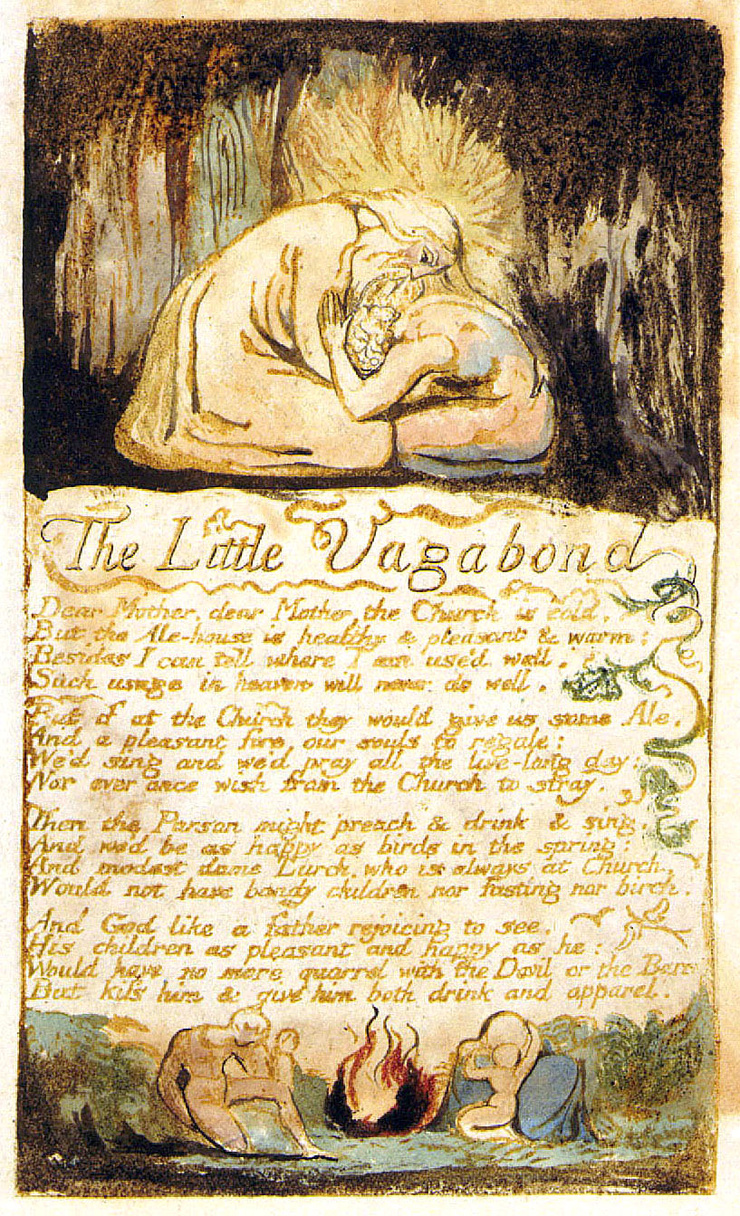 The Little Vagabond
Dear Mother, dear Mother, the Church is cold.
But the Ale-house is healthy & pleasant & warm:
Besides I can tell where I am used well.
Such usage in heaven will never do well.
But if at the Church they would give us some Ale.
And a pleasant fire, our souls to regale:
We'd sing and we'd pray all the live-long day:
Nor ever once wish from the Church to stray.
Then the Parson might preach & drink & sing.
And we'd be as happy as birds in the spring:
And modest dame Lurch, who is always at Church.
Would not have bandy children nor fasting nor birch.
And God like a father rejoicing to see.
His children as pleasant and happy as he:
Would have no more quarrel with the Devil or the Barrel
But kiss him & give him both drink and apparel.